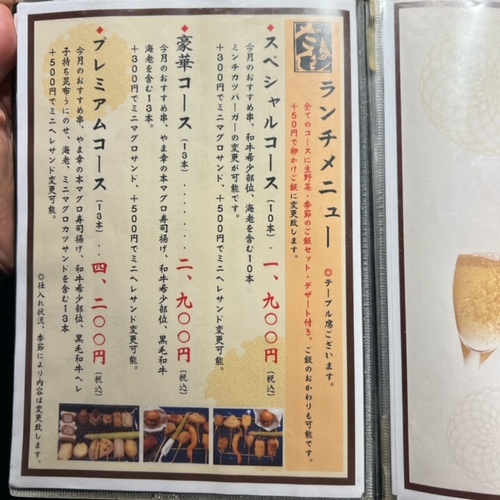 ランチメニュー
◎テーブル席ございます。
全てのコースに生野菜・季節のご飯セット・デザート付き。ご飯のおかわりも可能です。
+50円で卵かけご飯に変更致します。
◆スペシャルコース(10本)・一、九〇〇円(税込)
今月のおすすめ串、和牛希少部位、海老を含む10本
ミンチカツバーガーの変更が可能です。
+300円でミニマグロサンド、+500円でミニヘレサンド変更可能。
◆豪華コース(13本)・・・・・・・二、九〇〇円(税込)
今月のおすすめ串、やま幸の本マグロ寿司揚げ、和牛希少部位、黒毛和牛ヘレ
海老を含む13本。
+300円でミニマグロサンド、+500円でミニヘレサンド変更可能。
◆プレミアムコース(13本)・・四、二〇〇円(税込)
今月のおすすめ串、やま幸の本マグロ寿司揚げ、和牛希少部位、黒毛和牛ヘレ
子持ち昆布うにのせ、海老、ミニマグロカツサンドを含む13本
+500円でミニヘレサンド変更可能。
◎仕入れ状況、季節により内容は変更致します。